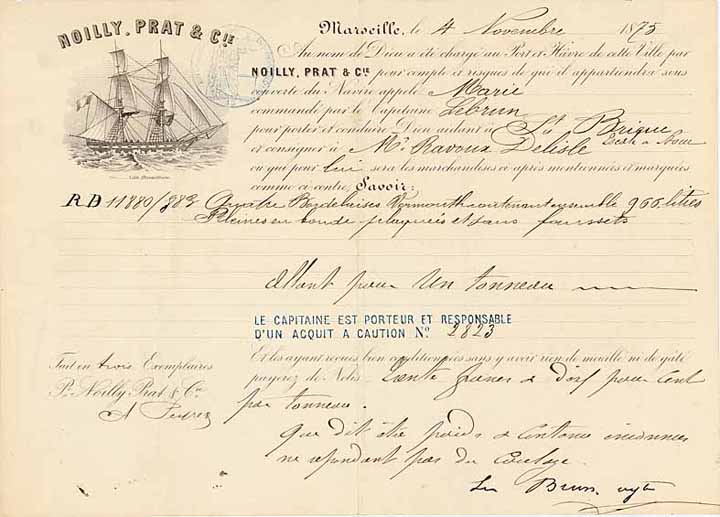 NOILLY, PRAT & CIE
Marseille, le 4 Novembre 1875
Au nom de Dieu a été chargé au Port et Hâvre de cette Ville par
NOILLY, PRAT & CIE pour compte et risques de qui il appartiendra sous
couverte du Navire appelé Marie
commandé par le Capitaine Lebrun
pour porter et conduire Dieu aidant à St Brieuc
et consigner à Mr Ravoux Delisle
ou qui pour lui sera les marchandises ci-après mentionnées et marquées
comme ci contre, Savoir:
R D 11880/ Quatre Bordelaises Vermouth contenant ensemble 960 litres
Pleines en bonde plaquées et sans faussets
allant pour Un tonneau
LE CAPITAINE EST PORTEUR ET RESPONSABLE
D'UN ACQUIT A CAUTION No 2823
Et les ayant reçues bien conditionnées sans y avoir rien de mouillé ni de gâté
payerez de Nolis trente francs & dix pour cent
par tonneau.
Fait en trois Exemplaires
Pr Noilly Prat & Cie
que dit être poids & contenu inconnus
ne repondant pas du coulage
Le Brun